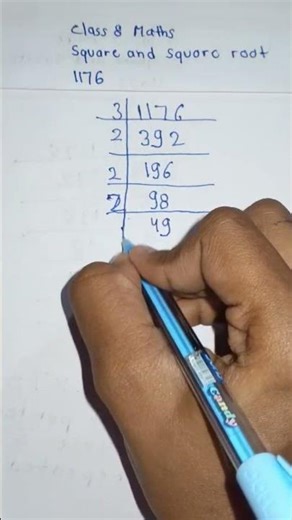 Class 8 Maths
Square and square root
1176
3 1176
2 392
2 196
2 98
49
Candy